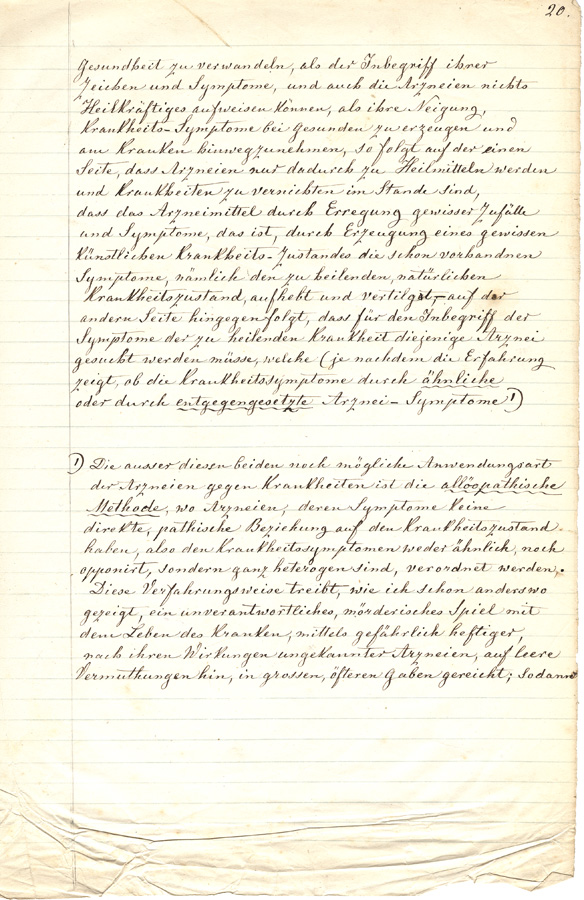 20.
Gesundheit zu verwandeln, als der Inbegriff ihrer
Zeichen und Symptome, und auch die Arzneien nichts
Heilkräftiges aufweisen können, als ihre Neigung,
Krankheits-Symptome bei Gesunden zu erzeugen und
am Kranken hinwegzunehmen, so folgt auf der einen
Seite, dass Arzneien nur dadurch zu Heilmitteln werden
und Krankheiten zu vernichten im Stande sind,
dass das Arzneimittel durch Erregung gewisser Zufälle
und Symptome, das ist, durch Erzeugung eines gewissen
künstlichen Krankheits-Zustandes die schon vorhandnen
Symptome, nämlich den zu heilenden, natürlichen
Krankheitszustand, aufhebt und vertilgt, – auf der
andern Seite hingegen folgt, dass für den Inbegriff der
Symptome der zu heilenden Krankheit diejenige Arznei
gesucht werden müsse, welche (je nachdem die Erfahrung
zeigt, ob die Krankheitssymptome durch ähnliche
oder durch entgegengesetzte Arznei-Symptome 1)
1) Die ausser diesen beiden noch mögliche Anwendungsart
der Arzneien gegen Krankheiten ist die allöopathische
Methode, wo Arzneien, deren Symptome keine
direkte, pathische Beziehung auf den Krankheitszustand
haben, also den Krankheitssymptomen weder ähnlich, noch
opponirt, sondern ganz heterogen sind, verordnet werden.
Diese Verfahrungsweise treibt, wie ich schon anderswo
gezeigt, ein unverantwortliches, mörderisches Spiel mit
dem Leben des Kranken, mittels gefährlich heftiger,
nach ihren Wirkungen ungekannter Arzneien, auf leere
Vermuthungen hin, in grossen, öfteren Gaben gereicht; sodann